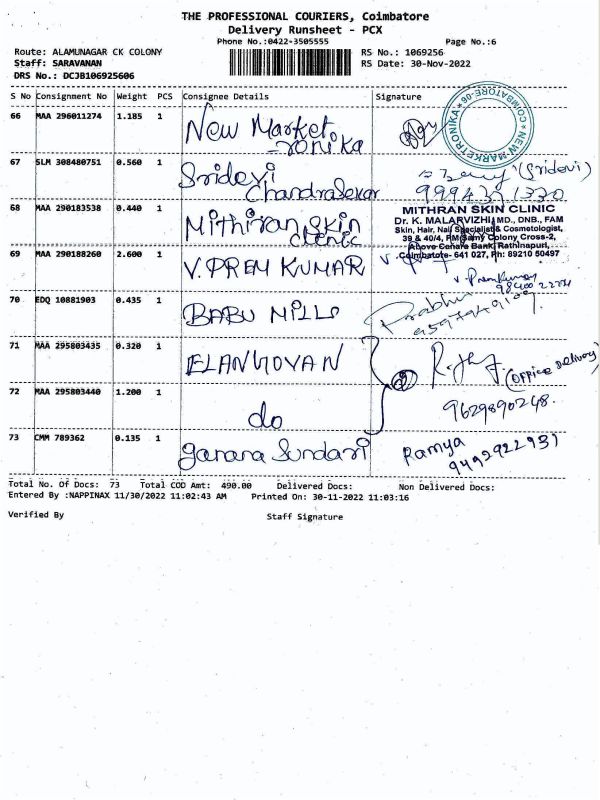 THE PROFESSIONAL COURIERS, Coimbatore
Delivery Runsheet - PCX
Phone No.:0422-3505555 Page No.:6
Route: ALAMUNAGAR CK COLONY RS No.: 1069256
Staff: SARAVANAN RS Date: 30-Nov-2022
DRS No.: DCJB106925606
S No Consignment No Weight PCS Consignee Details Signature
66 MAA 296011274 1.185 1 New Market
ronika
COIMBATORE-06 * NEW-MARKETRONIKA *
67 SLM 308480751 0.560 1 Sridevi (Sridevi)
Chandrasekar
68 MAA 290183538 0.440 1 Mithiran Skin
clinic
MITHRAN SKIN CLINIC
Dr. K. MALARVIZHI MD., DNB., FAM
Skin, Hair, Nail Specialist & Cosmetologist,
39 & 40/4, PM Samy Colony Cross-2,
Above Canara Bank, Rathinapuri,
Coimbatore- 641 027, Ph: 89210 50497
69 MAA 290188260 2.600 1 V.PREM KUMAR
V. Prem Kumar
70 EDQ 10881903 0.435 1 BABU MILLS Prabhu
71 MAA 295803435 0.320 1 ELANGOVAN
(office Delivery)
72 MAA 295803440 1.200 1 do 9629890248.
73 CMM 789362 0.135 1 ganana Sundari Ramya
9492922931
Total No. Of Docs: 73 Total COD Amt: 490.00 Delivered Docs: Non Delivered Docs:
Entered By :NAPPINAX 11/30/2022 11:02:43 AM Printed On: 30-11-2022 11:03:16
Verified By Staff Signature